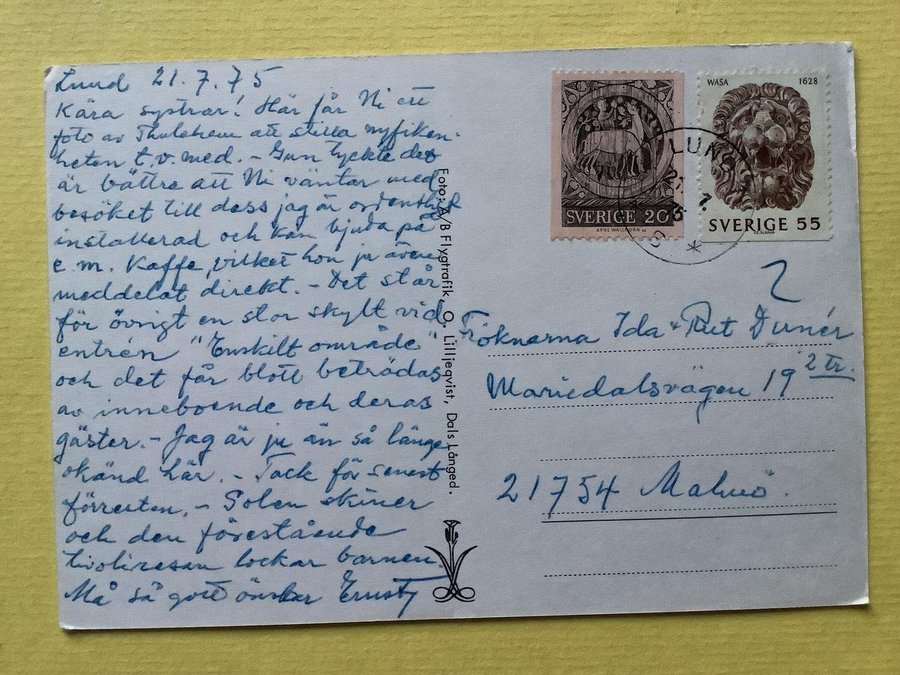 Lund 21.7.75
Kära systrar! Här får Ni ett
foto av Thulehem att stilla nyfiken-
heten t.v. med. - Gun tyckte det
är bättre att Ni väntar med
besöket till dess jag är ordentligt
installerad och kan bjuda på
e.m. kaffe, vilket hon ju även
meddelat direkt. - Det står
för övrigt en stor skylt vid
entrén "Enskilt område"
och det får blott beträdas
av inneboende och deras
gäster. - Jag är ju än så länge
okänd här. - Tack för senast
förresten. - Solen skiner
och den förestående
tivoliresan lockar barnen.
Må så gott önskar Ernst
Foto: A/B Flygtrafik, O. Lilljeqvist, Dals Långed.
SVERIGE 20
ARNE WALLHORN SC
WASA 1628
SVERIGE 55
LUND
Fröknarna Ida & Rut Dunér
Mariedalsvägen 19 2 tr.
21754 Malmö.